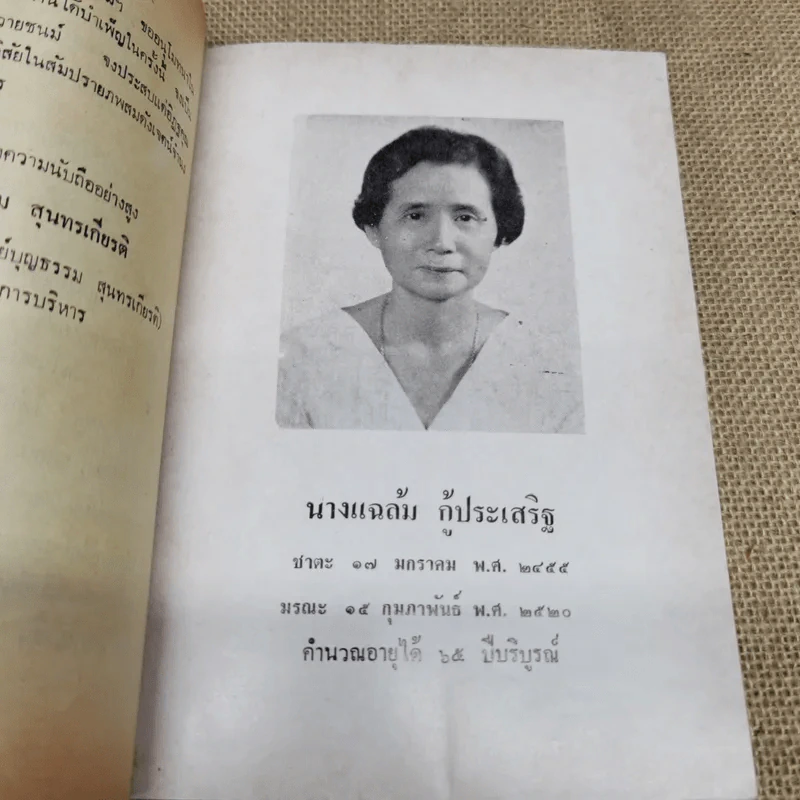 ได้บำเพ็ญในครั้งนี้
จงประสบแด่
วิสัยในสัมปรายภพสมดังเจตน์จำนง
ความนับถืออย่างสูง
สุนทรเกียรติ
บุญธรรม สุนทรเกียรติ)
การบริหาร
นางแฉล้ม กู้ประเสริฐ
ชาตะ ๑๗ มกราคม พ.ศ. ๒๔๕๕
มรณะ ๑๕ กุมภาพันธ์ พ.ศ. ๒๕๒๐
คำนวณอายุได้ ๖๕ ปีบริบูรณ์